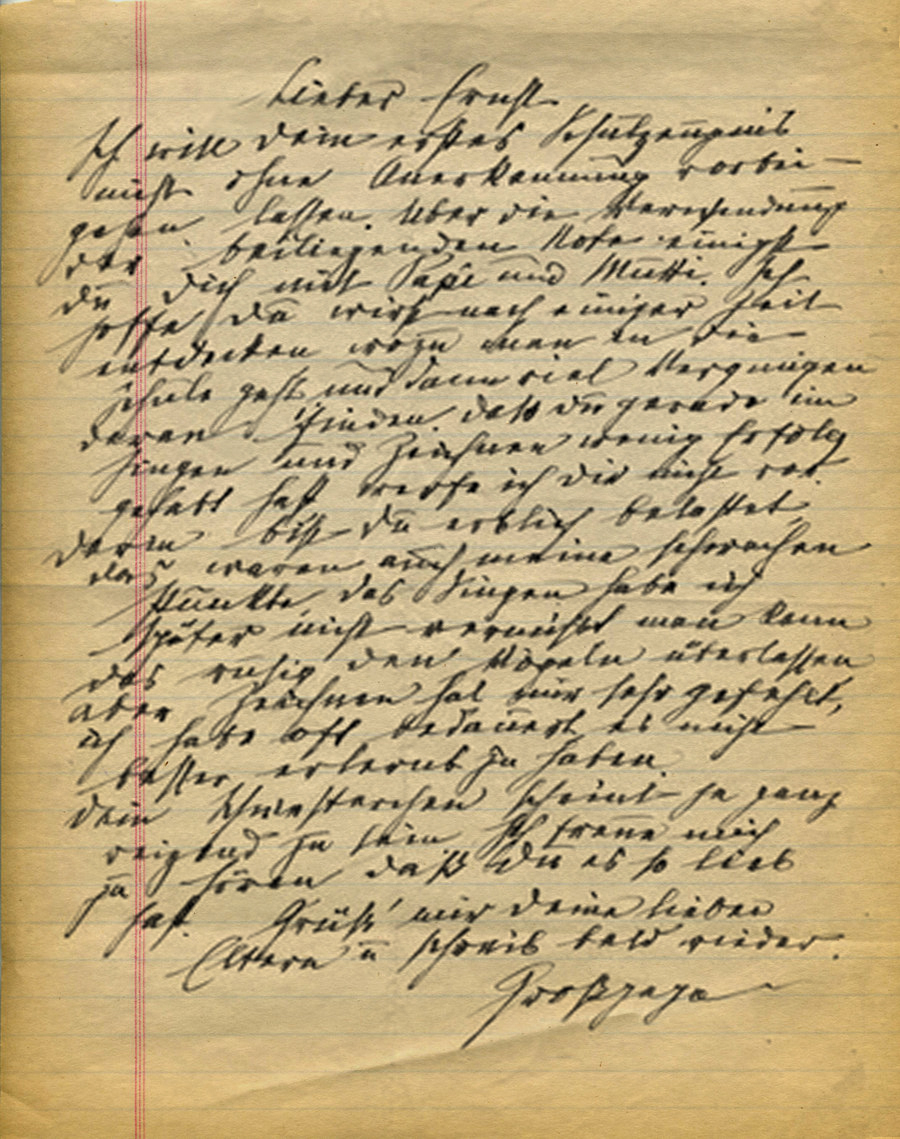 Lieber Ernst
Ich will dein erstes Schulzeugnis
nicht ohne Anerkennung vorbei-
gehen lassen. Über die Verwendung
der beiliegenden Note einigst
du dich mit Papi und Mutti. Ich
hoffe du wirst nach einiger Zeit
entdecken wozu man in die
Schule geht und dann viel Vergnügen
daran finden. Daß du gerade im
Singen und Zeichnen wenig Erfolg
gehabt hast werfe ich dir nicht vor.
Daran bist du erblich belastet,
das waren auch meine schwachen
Punkte, das Singen habe ich
später nicht vermißt man kann
das ruhig den Vögeln überlassen
aber Zeichnen hat mir sehr gefehlt,
ich habe oft bedauert es nicht
besser erlernt zu haben.
Dein Schwesterchen scheint ja ganz
reizend zu sein Ich freue mich
zu hören daß du es so lieb
hast. Grüß' mir deine lieben
Eltern u schreib bald wieder.
Großpapa